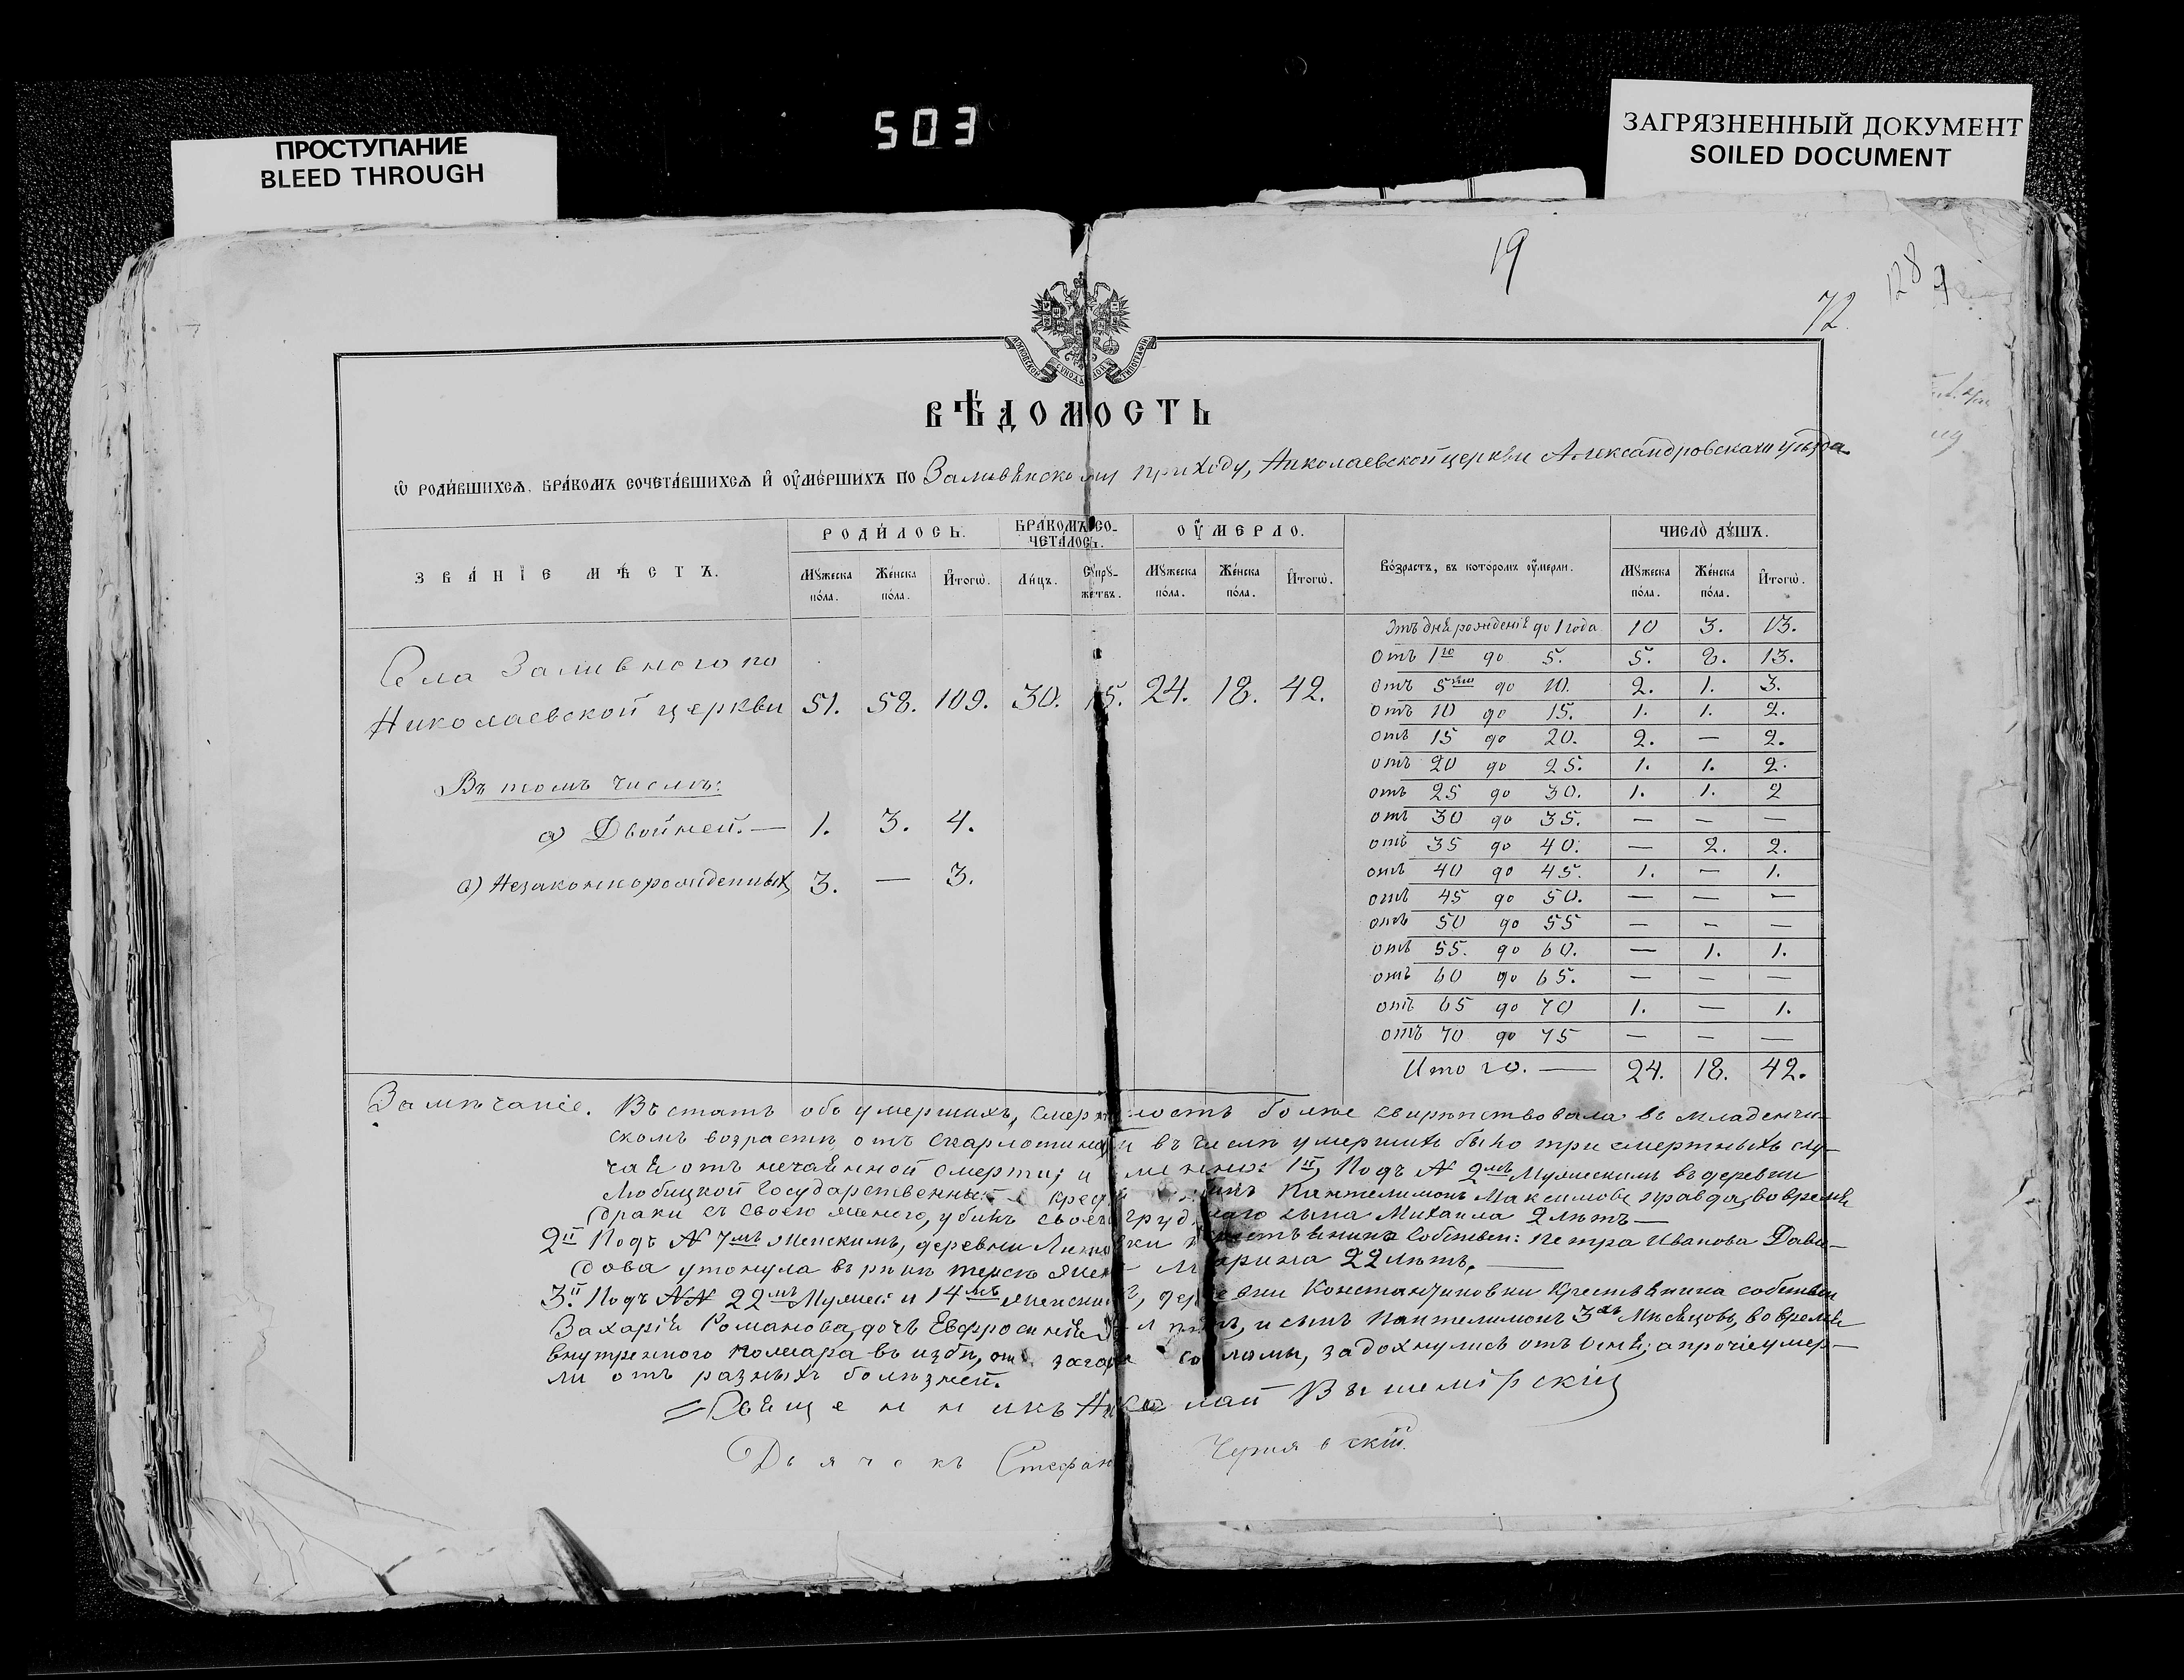 503
ПРОСТУПАНИЕ
BLEED THROUGH
ЗАГРЯЗНЕННЫЙ ДОКУМЕНТ
SOILED DOCUMENT
19
72
128
ВѢДОМОСТЬ
Ѡ РОДИ́ВШИХСѦ, БРА́КОМЪ СОЧЕТА́ВШИХСѦ И҆ ОУ҆МЕ́РШИХЪ ПО Заливянскому приходу, Николаевской церкви Александровскаго уѣзда
ЗВА́НІЕ МѢ́СТЪ. РОДИ́ЛОСЬ. БРА́КОМЪ СО-ЧЕТА́ЛОСЬ. ОУ҆́МЕРЛО. Во́зрастъ, въ которомъ оу҆́мерли. ЧИСЛО̀ ДꙊ́ШЪ.
Мꙋ́жеска по́ла. Же́нска по́ла. И҆тогѡ̀. Ли́цъ. Сꙋпрꙋ́-жествъ. Мꙋ́жеска по́ла. Же́нска по́ла. И҆тогѡ̀. Мꙋ́жеска по́ла. Же́нска по́ла. И҆тогѡ̀.
Села Заливного по
Николаевской церкви 51. 58. 109. 30. 15. 24. 18. 42.
Въ томъ числѣ:
а) Двойней. — 1. 3. 4.
в) Незаконнорожденныхъ 3. — 3.
Отъ дня рожденія до 1 года 10 3. 13.
Отъ 1го до 5. 5. 8. 13.
Отъ 5ти до 10. 2. 1. 3.
Отъ 10 до 15. 1. 1. 2.
отъ 15 до 20. 2. — 2.
отъ 20 до 25. 1. 1. 2.
отъ 25 до 30. 1. 1. 2
отъ 30 до 35. — — —
отъ 35 до 40. — 2. 2.
отъ 40 до 45. 1. — 1.
отъ 45 до 50. — — —
отъ 50 до 55 — — —
отъ 55. до 60. — 1. 1.
отъ 60 до 65. — — —
отъ 65 до 70 1. — 1.
отъ 70 до 75 — — —
Итого. — 24. 18. 42.
Замѣчаніе. Въ статѣ объ умершихъ, смертность болѣе свирѣпствовала въ младенче-
скомъ возрастѣ отъ скарлотины и въ числѣ умершихъ было три смертныхъ слу-
чая отъ нечаянной смерти; и именно: 1й, Подъ № 2мъ Мужескимъ въ деревни
Любицкой Государственный Пантелимонъ Максимовъ Правда, во время
драки съ своею женою, убилъ своего грудного сына Михаила 2 лѣтъ —
2й Подъ № 7мъ Женскимъ, деревни собствен: Петра Иванова Дави-
дова утонула въ рѣкѣ жена Марина 22 лѣтъ. —
3й. Подъ №№ 22мъ Мужес: и 14мъ Женскимъ, деревни Константиновки Крестьянина собствен
Захарія Романова, дочь Евфросинія лѣтъ, и сынъ Пантелимонъ 3хъ Мѣсяцовъ, во время
внутренного пожара въ избѣ, соломы, задохнулись отъ огня; а прочіе умер-
ли отъ разныхъ болѣзней.
Священникъ Николай Вышемірскій
Дьячекъ Стефан Чернявскій.